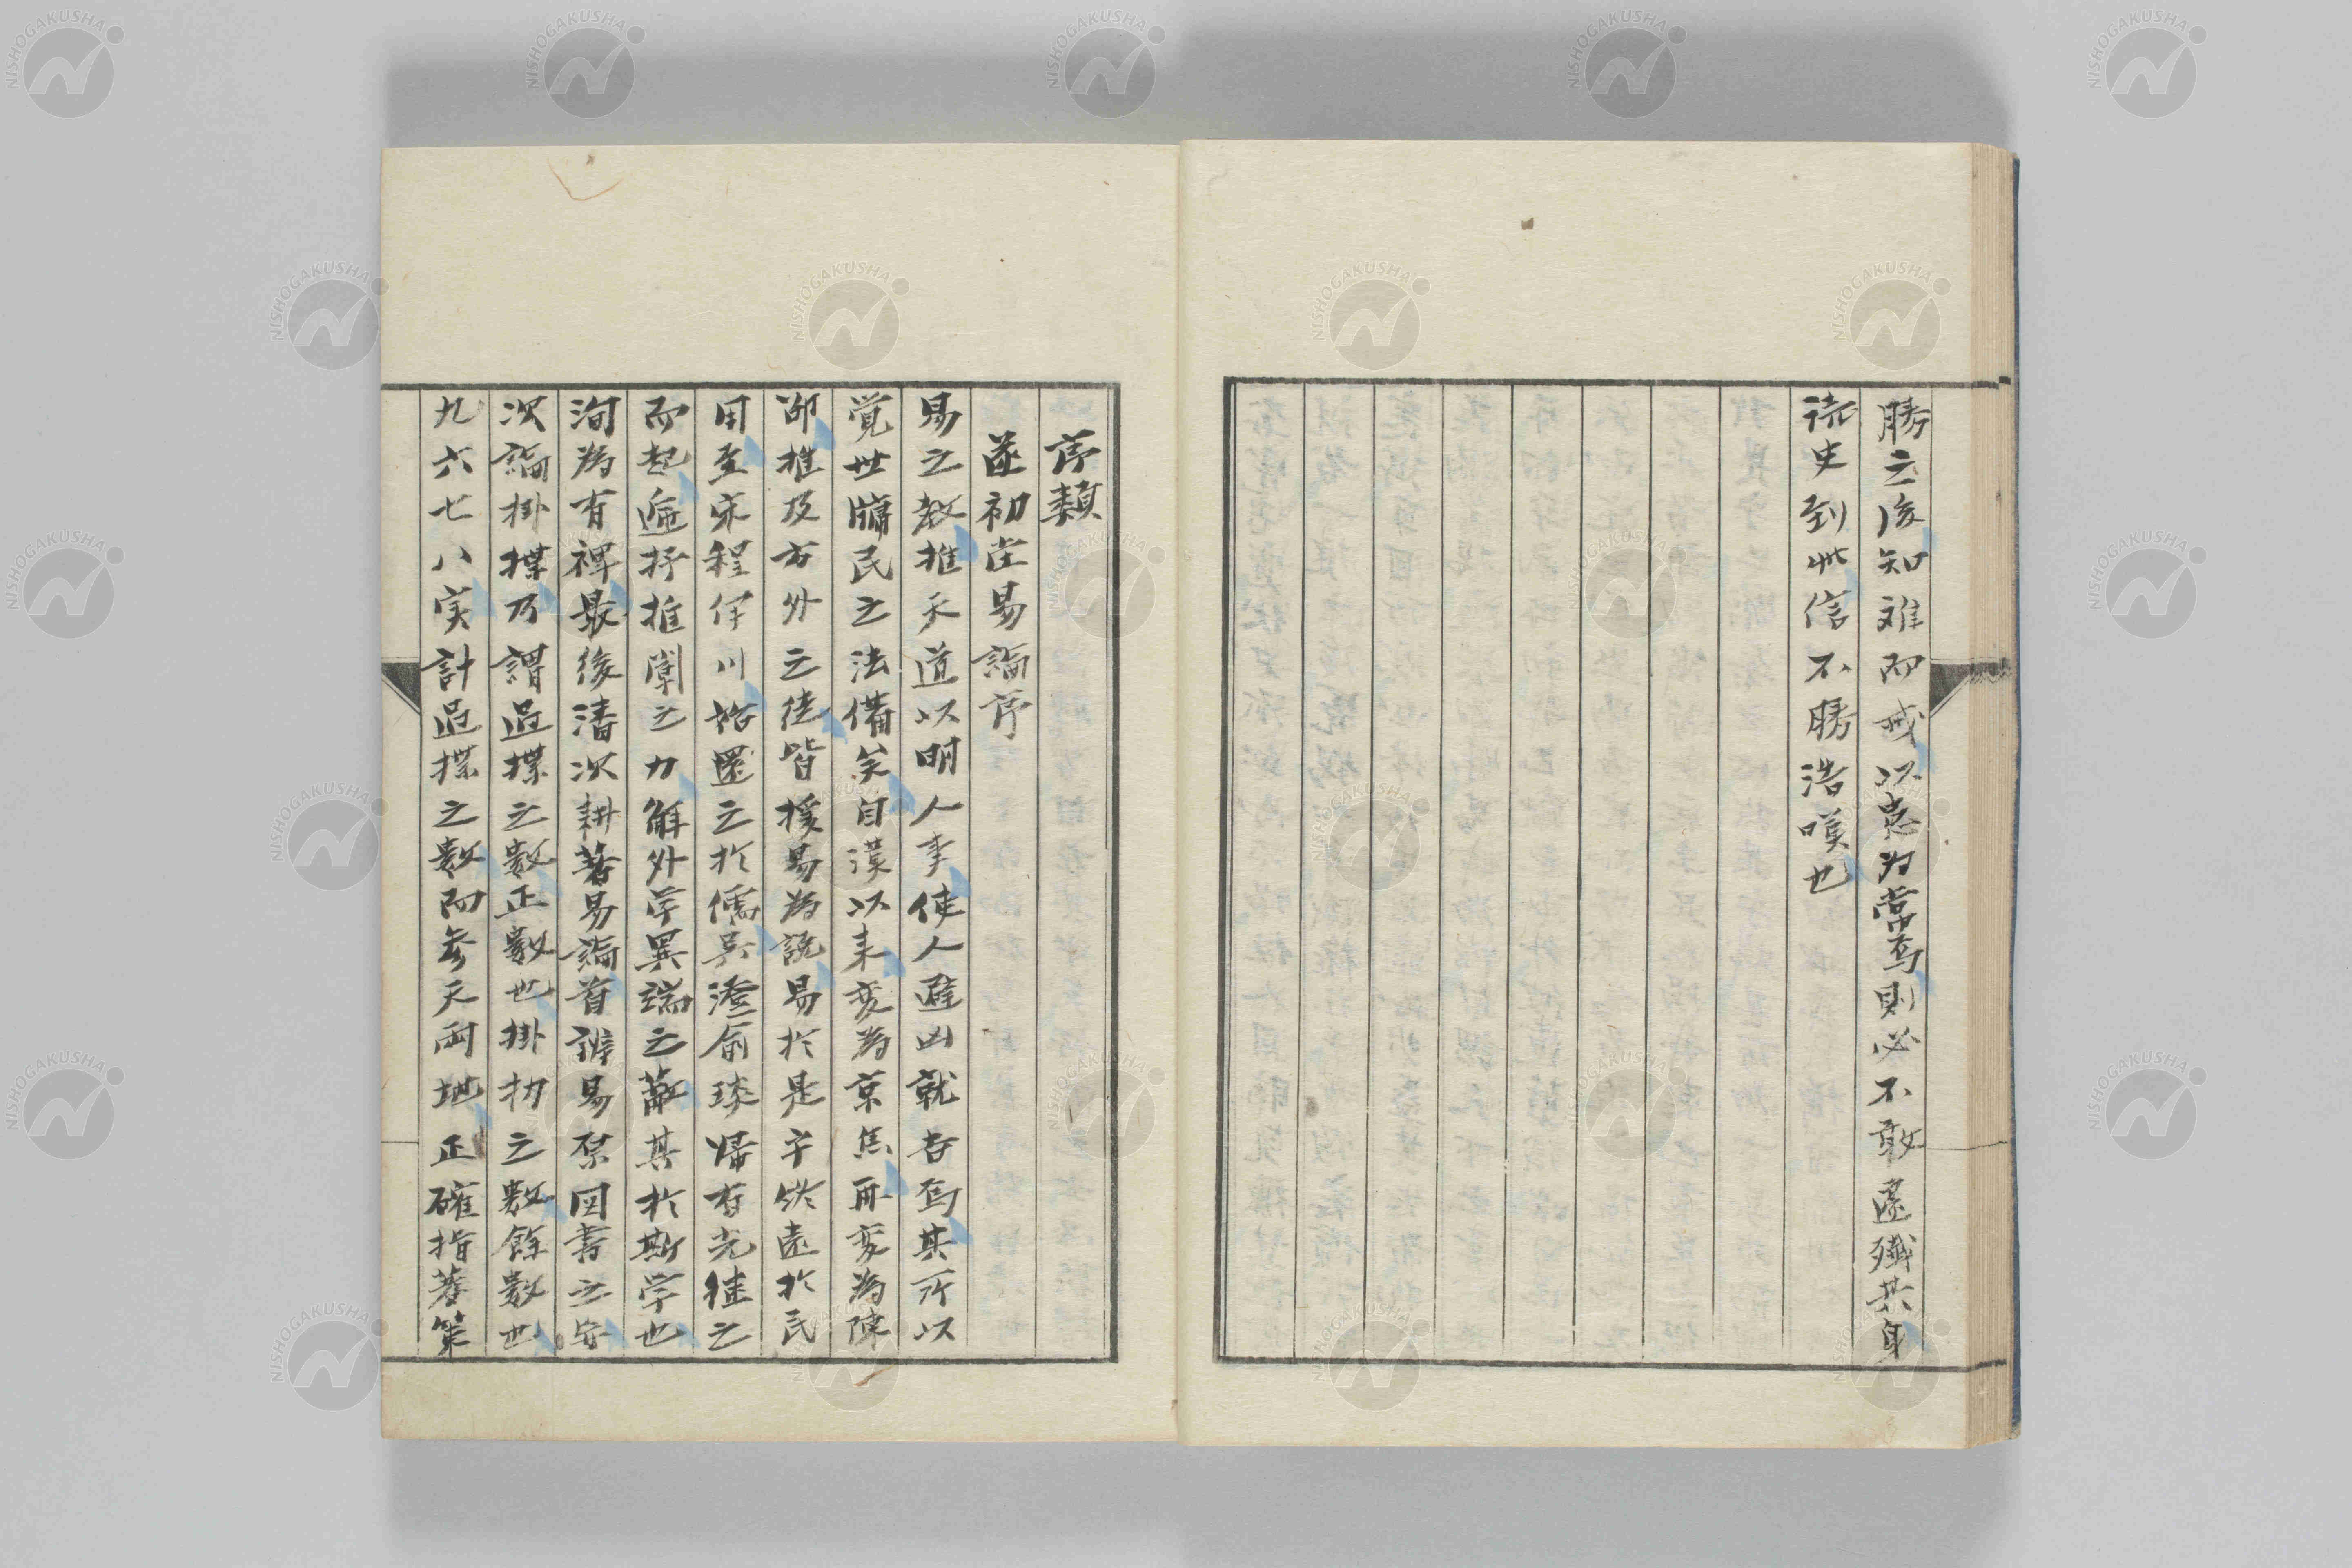 勝之後知難而戒以患為常焉則必不敢遽殲其身
読史到此信不勝浩嘆也
序類
遂初堂易論序
易之教推天道以明人事使人避凶就吉焉其所以
覚世牖民之法備矣自漢以来変為京焦再変為陳
邵推及方外之徒皆援易為説易於是乎終遠於民
用至宋程伊川始還之於儒呉澄俞琰帰有光継之
而起遞抒推闡之力解外学異端之蔽其於斯学也
洵為有裨最後潘次耕著易論首辨易原図書之安
次論掛揲乃謂過揲之数正数也掛扐之数餘数也
九六七八実計過揲之数而参天両地正確指蓍策
NISHOGAKUSHA